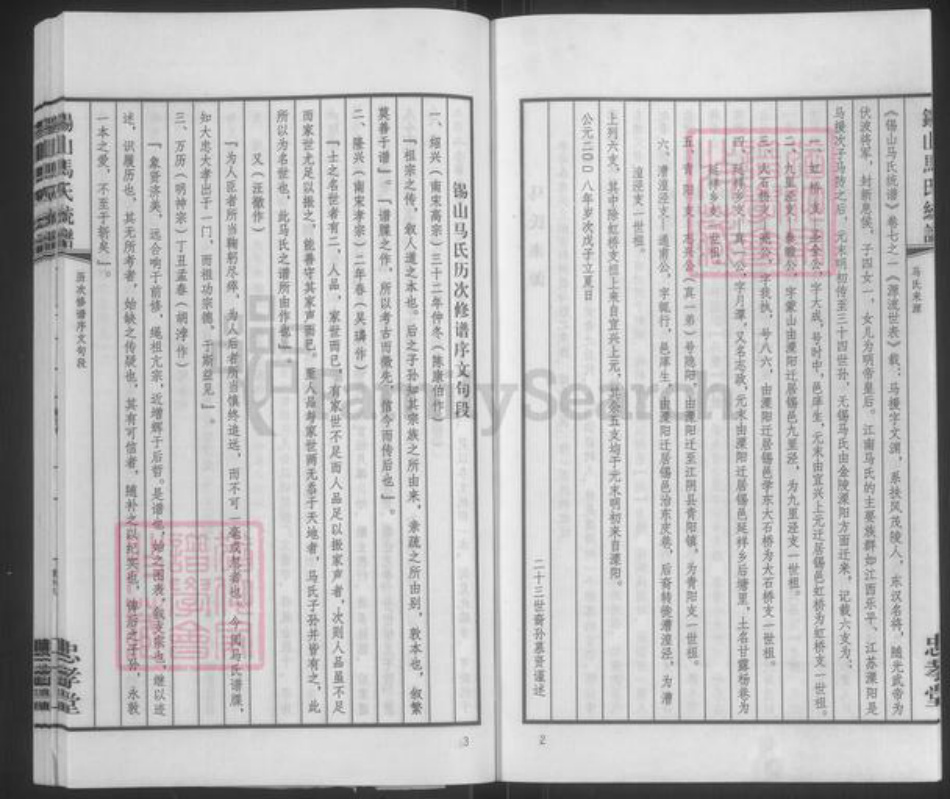 錫山馬氏統譜
马氏来源
忠孝堂
《锡山马氏统谱》卷七之一《源流世表》载：马援字文渊，系扶风茂陵人，东汉名将，随光武帝为
伏波将军，封新息侯。子四女一，女儿为明帝皇后。江南马氏的主要族群如江西乐平、江苏溧阳是
马援次子马防之后，元末明初传至三十四世孙，无锡马氏由金陵溧阳方面迁来，记载六支为：
一、虹桥支—圣全公，字大成，号时中，邑庠生，元末由宜兴上元迁居锡邑虹桥为虹桥支一世祖。
二、九里泾支—泰徽公，字蒙山由溧阳迁居锡邑九里泾，为九里泾支一世祖。
三、大石桥支—公，字我扶，号八六，由溧阳迁居锡邑学东大石桥为大石桥支一世祖。
四、延祥乡支—真一公，字月潭，又名志政，元末由溧阳迁居锡邑延祥乡后塘里，土名甘露杨巷为
延祥乡支一世祖。
五、青阳支—志兴公（真一弟）号隐阳，由溧阳迁至江阴县青阳镇，为青阳支一世祖。
六、漕湟泾支—通甫公，字昵行，邑庠生，由溧阳迁居锡邑治东皮巷，后裔转徙漕湟泾，为漕
湟泾支一世祖。
上列六支，其中除虹桥支祖上来自宜兴上元，其余五支均于元末明初来自溧阳。
公元二〇〇八年岁次戊子立夏日
二十三世裔孙墓贤谨述
2
锡山马氏历次修谱序文句段
一、绍兴（南宋高宗）三十二年仲冬（陈康伯作）
『祖宗之传，叙人道之本也。后之子孙知其宗族之所由来，亲疏之所由别，敦本也，叙繁
莫善于谱』。『谱牒之作，所以考古而徵先，信今而传后也』。
二、隆兴（南宋孝宗）二年春（吴璘作）
『士之名世者有二，人品，家世而已。有家世不足而人品足以振家声者，次则人品虽不足
而家世尤足以振之，能善守其家声而已。至人品与家世两无忝于天地者，马氏子孙并皆有之，此
所以为名世也，此马氏之谱所由作也』
又（汪徹作）
『为人臣者所当鞠躬尽瘁，为人后者所当慎终追远，而不可一毫或忽者也，今阅马氏谱牒，
知大忠大孝出于一门，而祖功宗德，于斯益见』。
三、万历（明神宗）丁丑孟春（胡涍作）
『象贤济美，远合响于前修，绳祖亢宗，近增辉于后哲。是谱也，始之图表，叙支宗也，继以迹
述，识履历也，其无所考者，始缺之传疑也，其有可信者，随补之以纪实也，俾后之子孙，永敦
一本之爱，不至于斩矣』。
历次修谱序文句段
錫山馬氏統譜
忠孝堂
3
FamilySearch